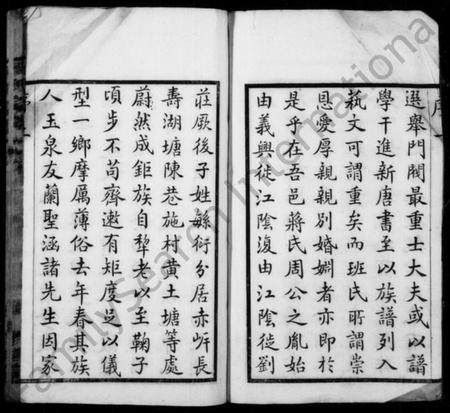 選舉門閥最重士大夫或以譜
學干進新唐書至以族譜列入
藝文可謂重矣而班氏所謂崇
恩愛厚親親別婚姻者亦即於
是乎在吾邑蔣氏周公之胤始
由義興徙江陰復由江陰徙劉
莊厥後子姓緜衍分居赤岸長
壽湖塘陳巷施村黃土塘等處
蔚然成鉅族自犂老以至鞠子
頃步不苟齊遬有矩度足以儀
型一鄉摩厲薄俗去年春其族
人玉泉友蘭聖涵諸先生因家
序
FamilySearch International